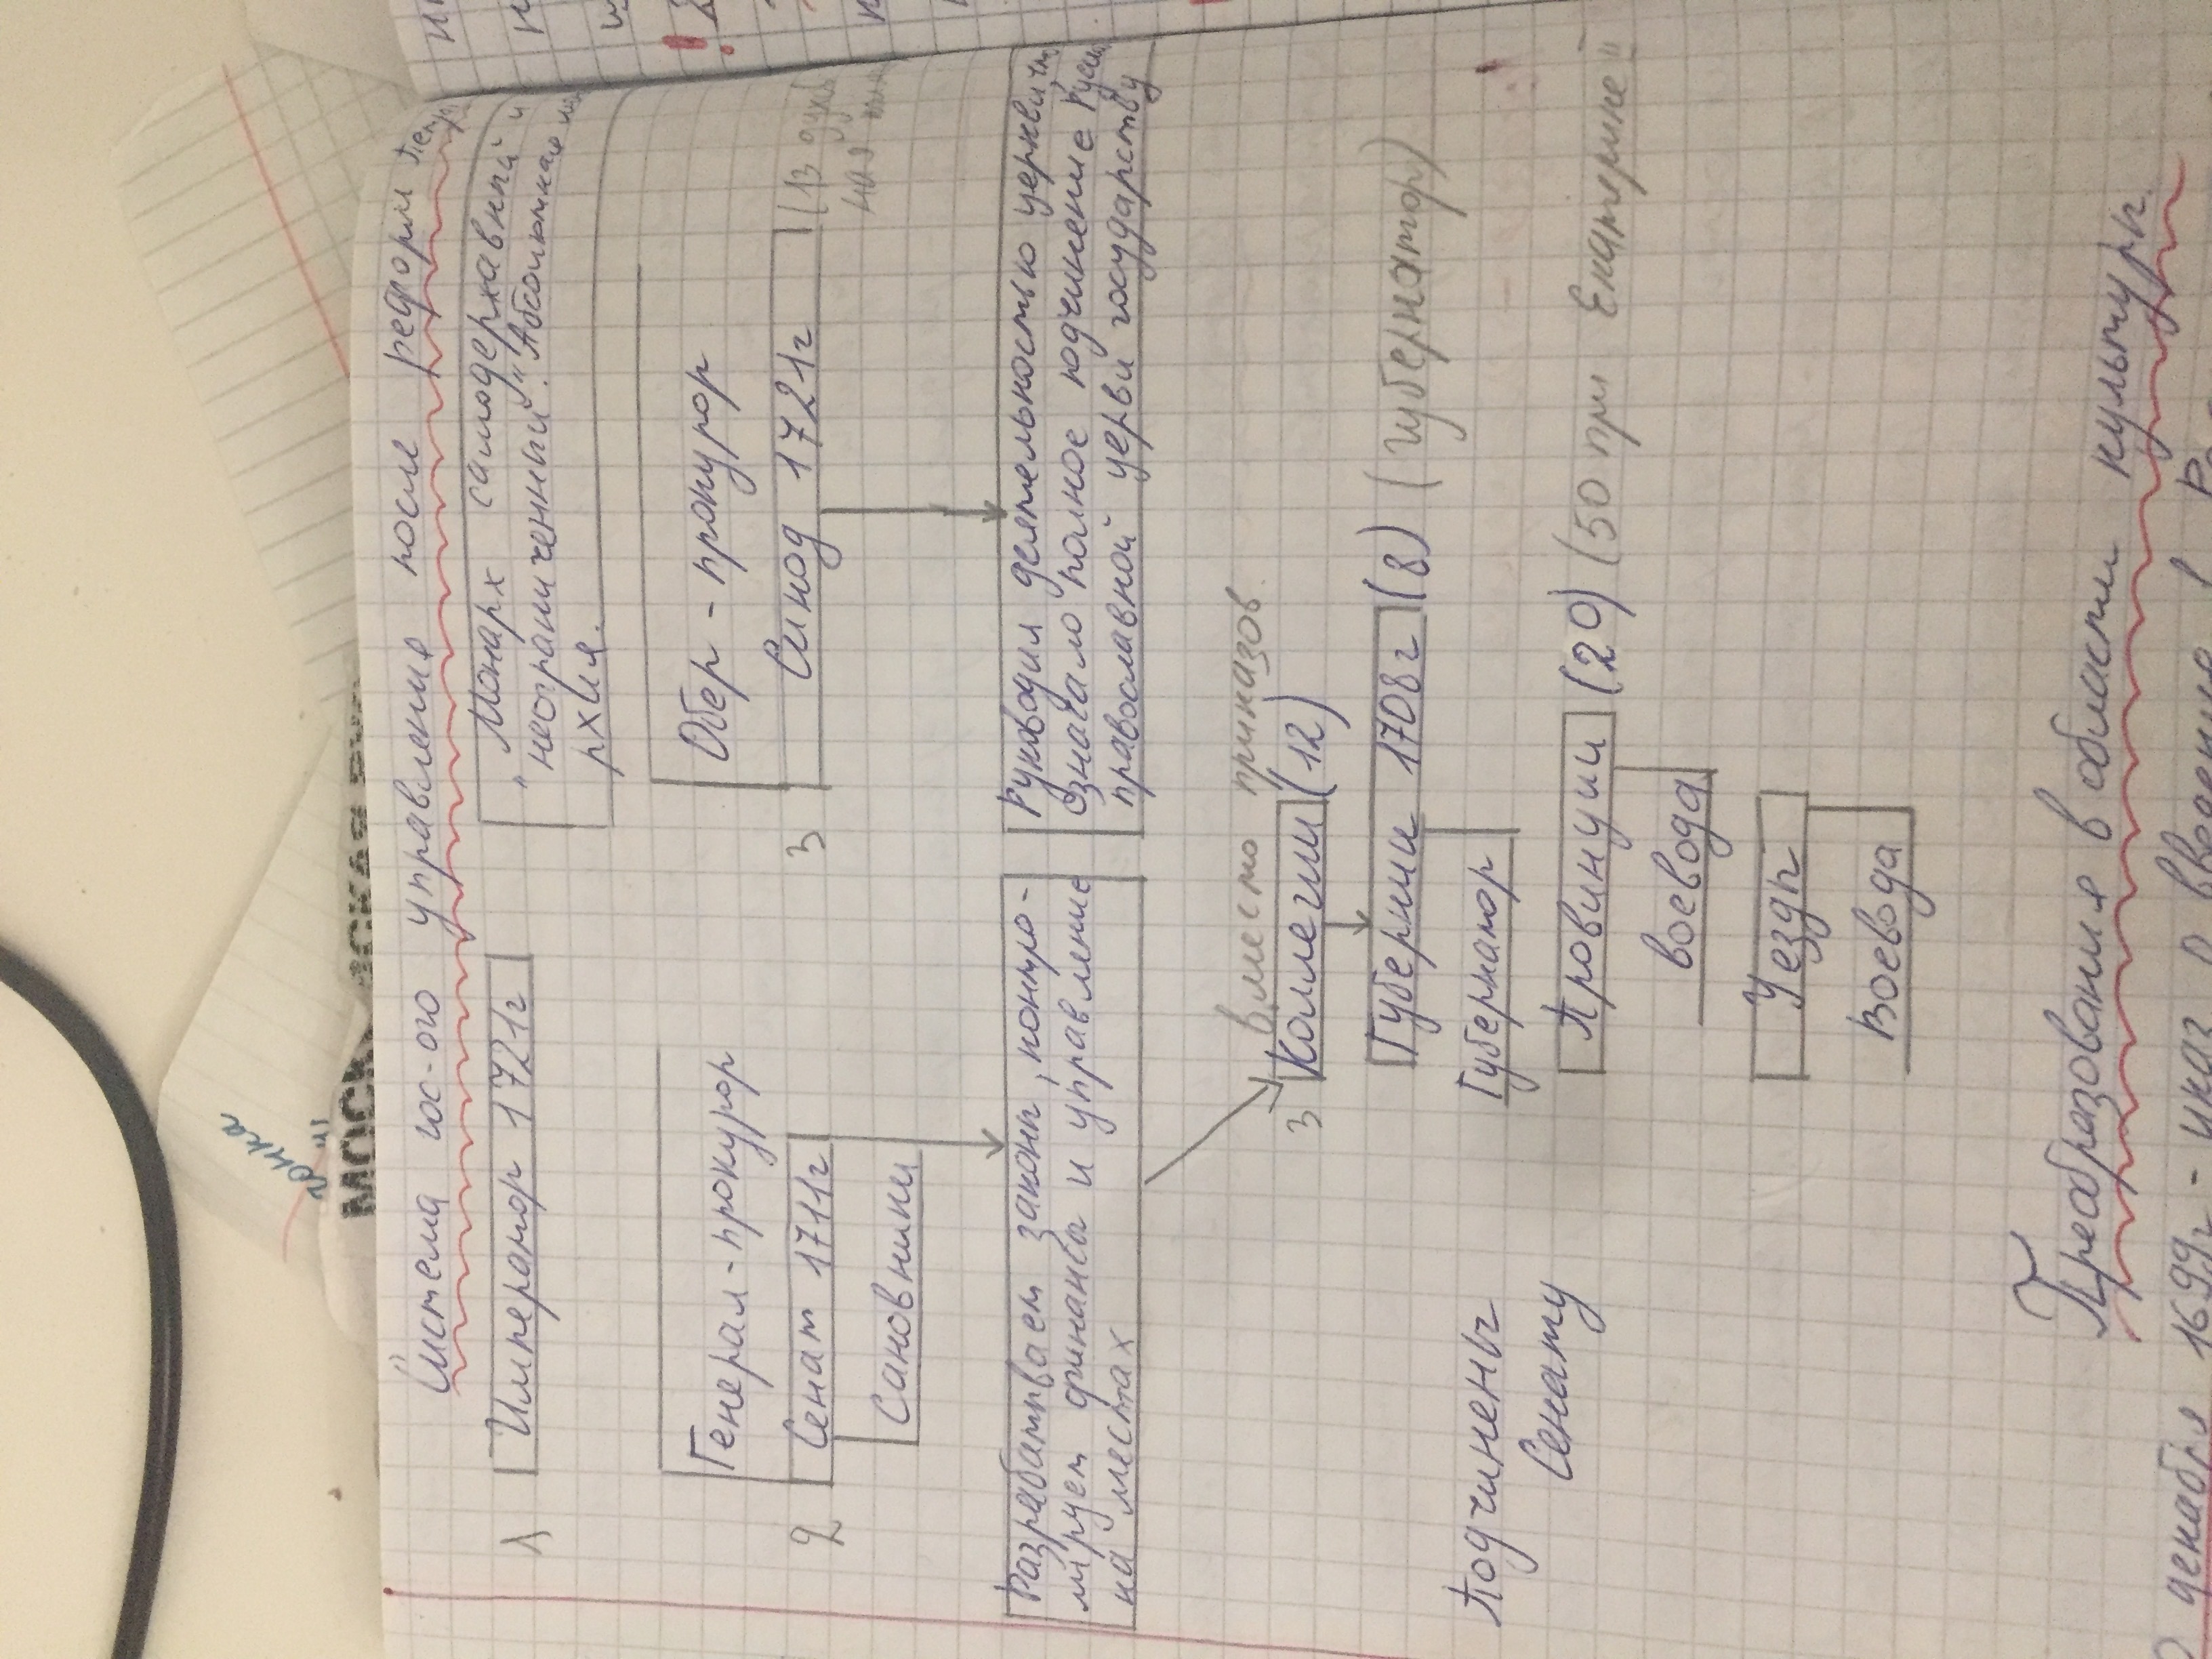 Система гос-ого управление после реформ
1 Император 1721г
Монарх самодержавный и
"неограниченный". "Абсолютная
рхия.
Генерал-прокурор
2 Сенат 1711г
Сановники
Обер-прокурор
3 Синод 1721г
(13
Разрабатывает законы, контро-
лирует финансы и управление
на местах
Руководил деятельностью церкви
Означало полное подчинение Русск
православной церви государству
вместо приказов
3 Коллегии (12)
Губернии 1708г (8) (губернатор)
Губернатор
Провинции (29) (50 при Екатерине"
воевода
Уезды
Воевода
Подчинены
Сенату
Преобразования в области культуры.
декабря 1699г - указ о введение в
МОСК